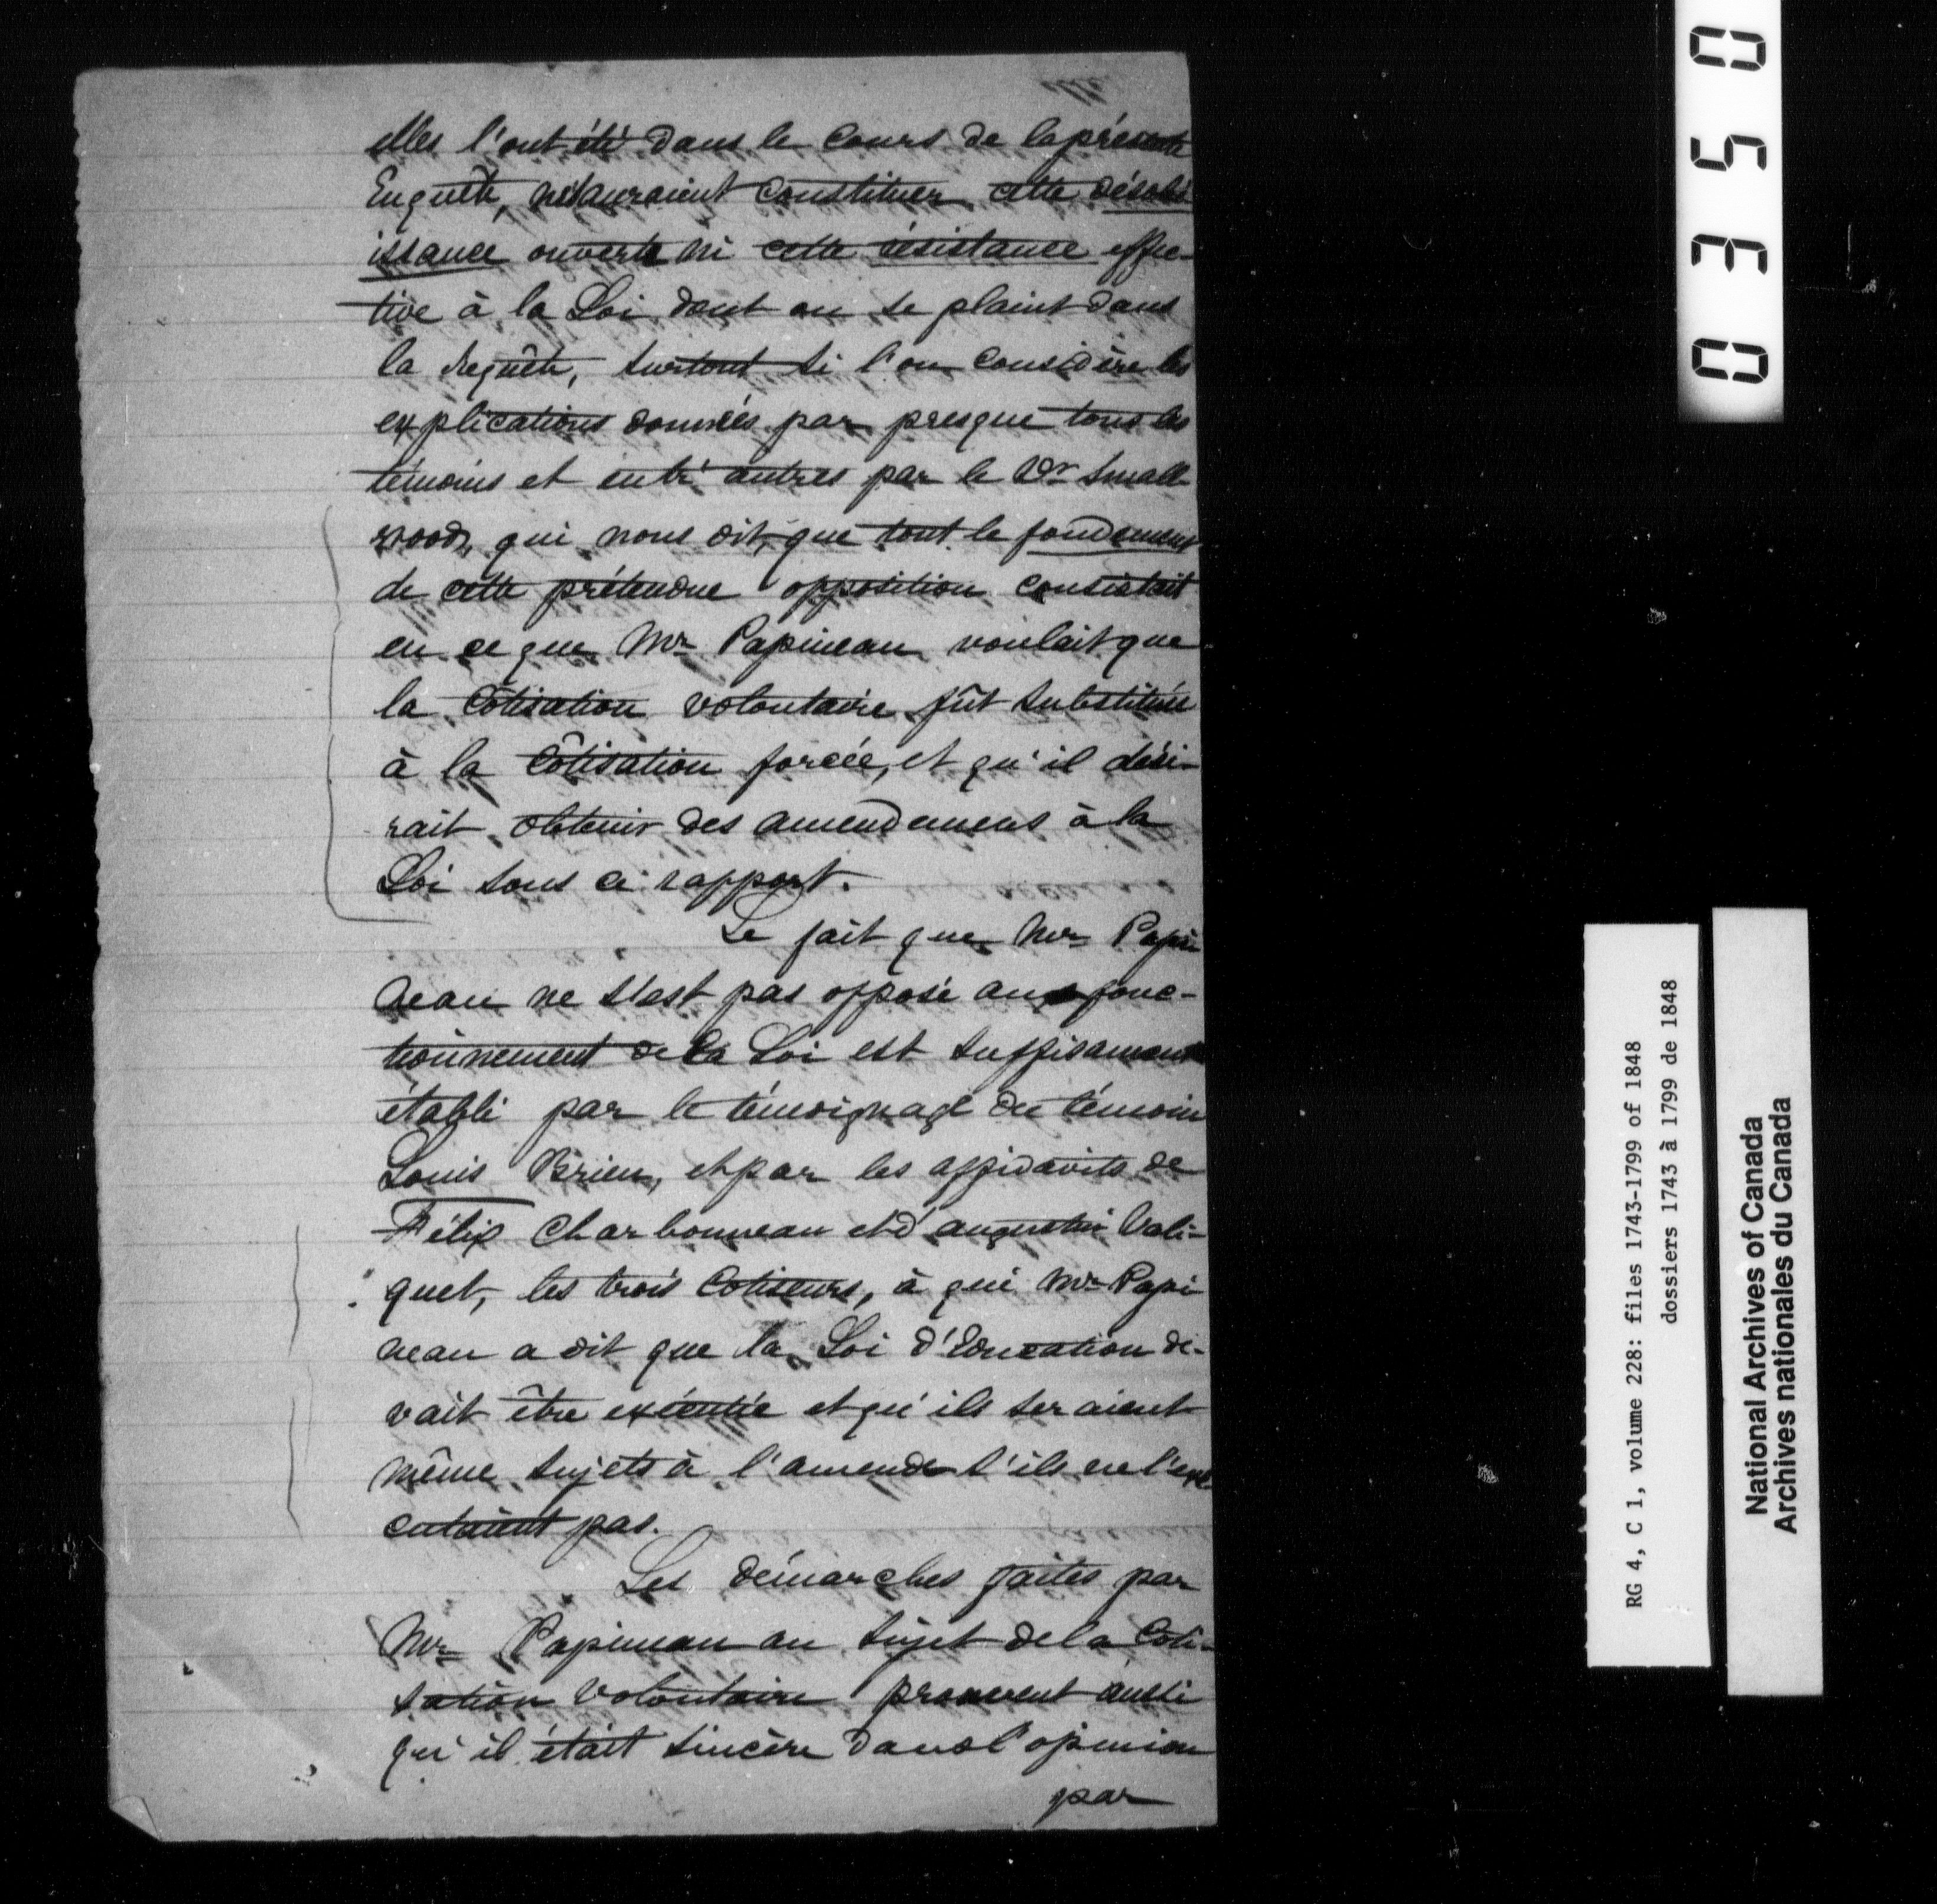 elles l'ont été dans le Cours de la présente
Enquête, ne sauraient constituer cette désobé
issance ouverte ni cette résistance effec-
tive à la Loi dont on se plaint dans
la Requête, surtout si l'on considère les
explications données par presque tous les
témoins et entr'autres par le Dr Small
wood, qui nous dit que tout le fondement
de cette prétendue opposition consistait
en ce que Mr Papineau voulait que
la Côtisation volontaire fût substituée
à la Côtisation forcée, et qu'il dési-
rait obtenir des amendemens à la
Loi sous ce rapport.
Le fait que Mr Papi
neau ne s'est pas opposé au fonc-
tionnement de la Loi est suffisamment
établi par le témoignage du témoin
Louis Brien, et par les affidavits de
Félix Charbonneau et d'augustin Vali-
quet, les trois Cotiseurs, à qui Mr Papi-
neau a dit que la Loi d'Education de-
vait être exécutée et qu'ils seraient
même sujets à l'amende s'ils ne l'exé-
cutaient pas.
Les démarches faites par
Mr Papineau au sujet de la Coti-
sation Volontaire prouvent aussi
qu'il était sincère dans l'opinion
par
0350
RG 4, C 1, volume 228: files 1743-1799 of 1848
dossiers 1743 à 1799 de 1848
National Archives of Canada
Archives nationales du Canada